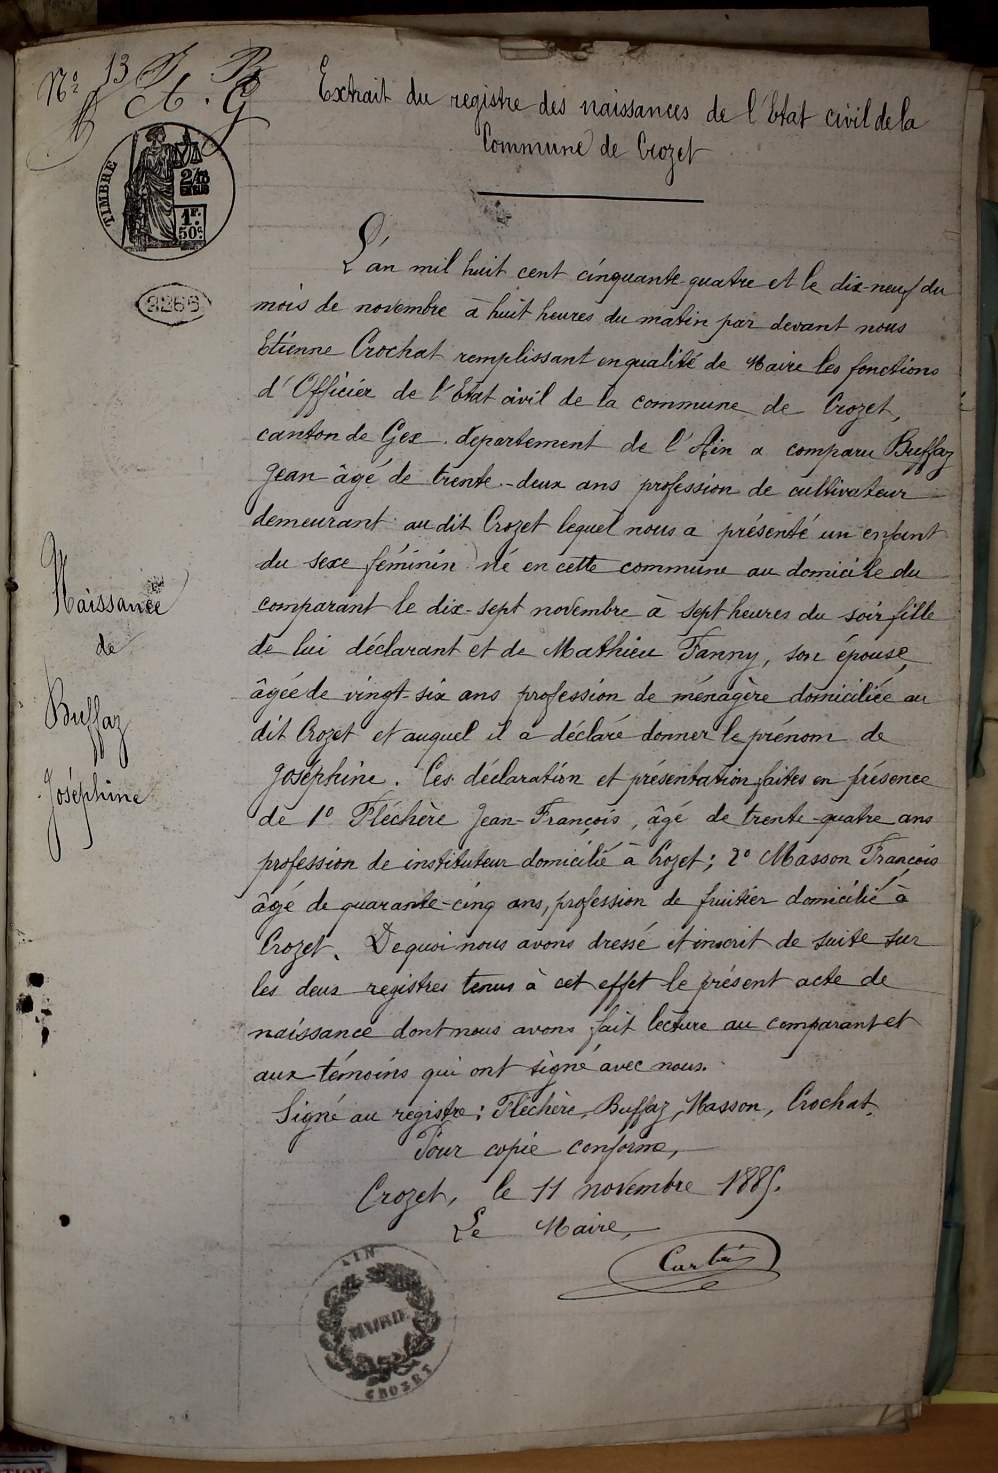 Nº 13
J. B.
A. G
Extrait du registre des naissances de l'Etat civil de la
Commune de Crozet
TIMBRE
2/10
EN SUS
1F.
50c.
3266
L'an mil huit cent cinquante quatre et le dix-neuf du
mois de novembre à huit heures du matin par devant nous
Etienne Crochat remplissant en qualité de Maire les fonctions
d'Officier de l'Etat civil de la commune de Crozet,
canton de Gex. département de l'Ain a comparu Buffaz
Jean âgé de trente-deux ans profession de cultivateur
demeurant au dit Crozet lequel nous a présenté un enfant
du sexe féminin né en cette commune au domicile du
comparant le dix-sept novembre à sept heures du soir fille
de lui déclarant et de Mathieu Fanny, son épouse,
âgée de vingt-six ans profession de ménagère domiciliée au
dit Crozet et auquel il a déclaré donner le prénom de
Joséphine. Ces déclaration et présentation faites en présence
de 1º Fléchère Jean-François, âgé de trente-quatre ans
profession de instituteur domicilié à Crozet; 2º Masson François
âgé de quarante-cinq ans, profession de fruitier domicilié à
Crozet. De quoi nous avons dressé et inscrit de suite sur
les deux registres tenus à cet effet le présent acte de
naissance dont nous avons fait lecture au comparant et
aux témoins qui ont signé avec nous.
Signé au registre: Fléchère, Buffaz, Masson, Crochat.
Pour copie conforme,
Crozet, le 11 novembre 1885.
Le Maire,
Naissance
de
Buffaz
Joséphine
AIN
MAIRIE
CROZET